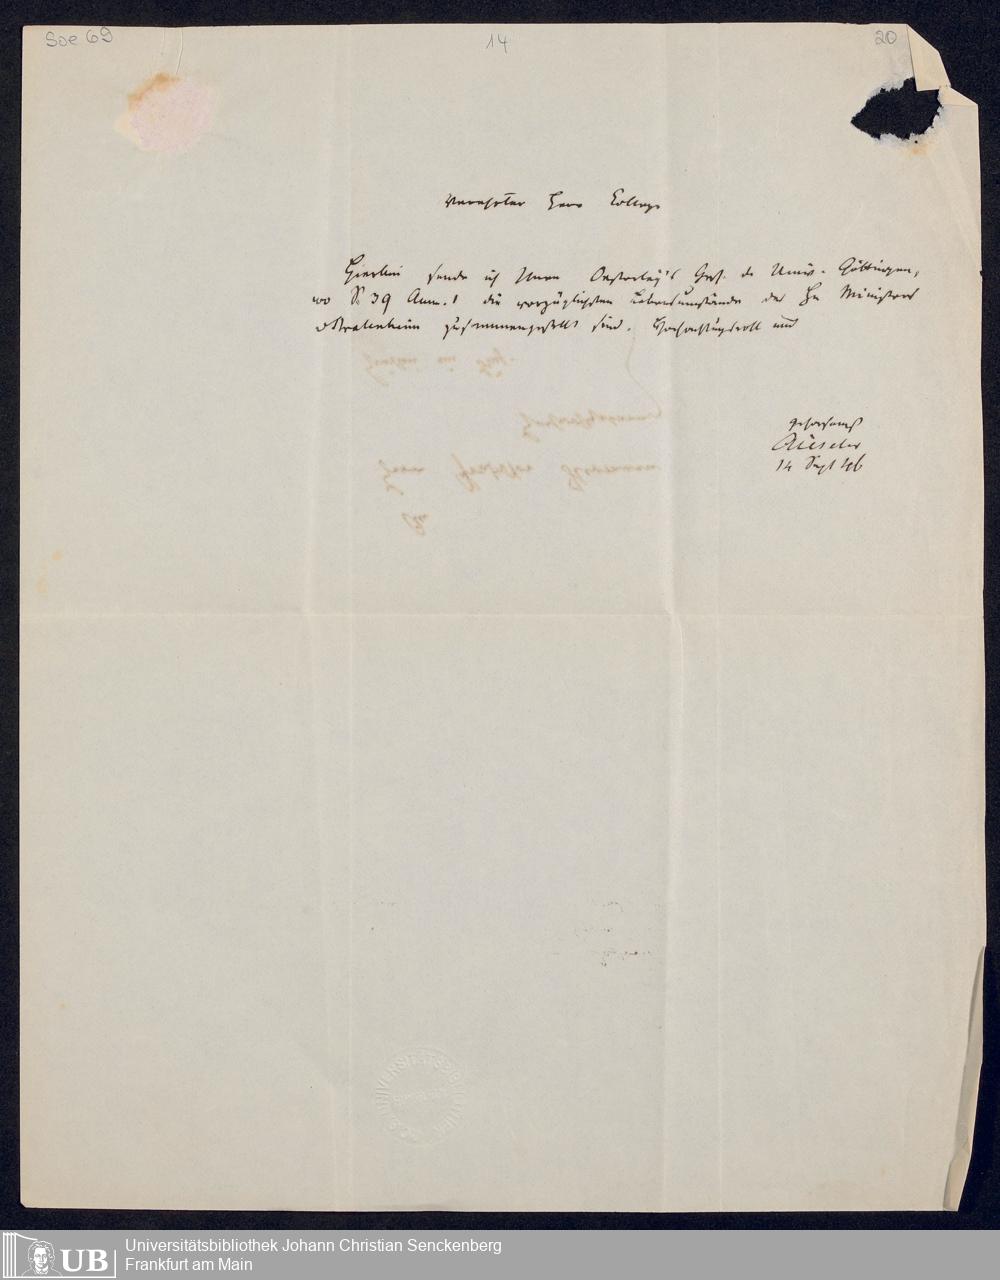 Soe 69
14
20
Verehrter Herr College
Hierbei sende ich Ihnen Oesterley's Gesch. der Univ. Göttingen,
wo S. 39 Anm. 1 die vorzüglichsten Lebensumstände des Hn Ministers
v Stralenheim zusammengestellt sind. Hochachtungsvoll und
gehorsamst
Gieseler
14 Sept 46
An
Herrn Professor Hermann
Hierbei ein Buch.
Universitätsbibliothek Johann Christian Senckenberg
Frankfurt am Main
UB